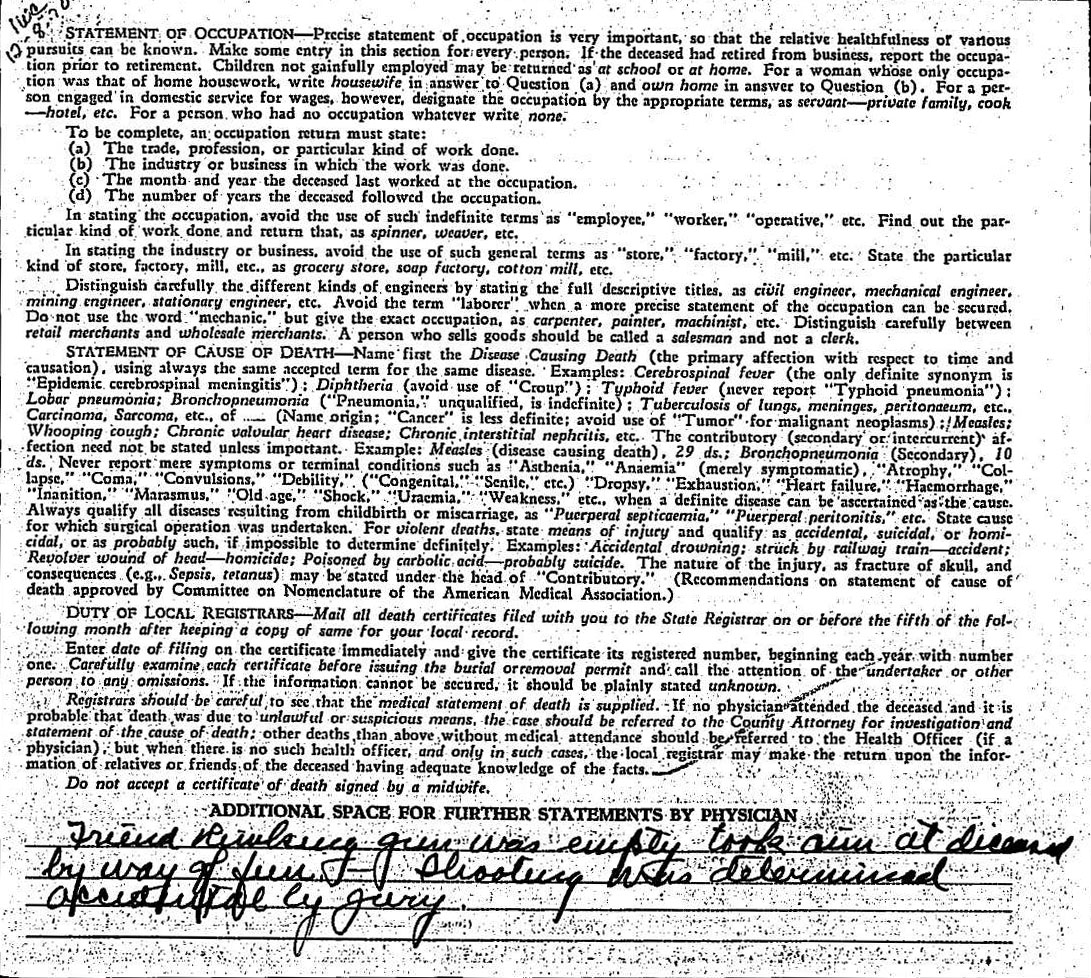 12-8-70
STATEMENT OF OCCUPATION—Precise statement of occupation is very important, so that the relative healthfulness of various
pursuits can be known. Make some entry in this section for every person. If the deceased had retired from business, report the occupa-
tion prior to retirement. Children not gainfully employed may be returned as at school or at home. For a woman whose only occupa-
tion was that of home housework, write housewife in answer to Question (a) and own home in answer to Question (b). For a per-
son engaged in domestic service for wages, however, designate the occupation by the appropriate terms, as servant—private family, cook
—hotel, etc. For a person who had no occupation whatever write none.
To be complete, an occupation return must state:
(a) The trade, profession, or particular kind of work done.
(b) The industry or business in which the work was done.
(c) The month and year the deceased last worked at the occupation.
(d) The number of years the deceased followed the occupation.
In stating the occupation, avoid the use of such indefinite terms as "employee," "worker," "operative," etc. Find out the par-
ticular kind of work done and return that, as spinner, weaver, etc.
In stating the industry or business, avoid the use of such general terms as "store," "factory," "mill," etc. State the particular
kind of store, factory, mill, etc., as grocery store, soap factory, cotton mill, etc.
Distinguish carefully the different kinds of engineers by stating the full descriptive titles, as civil engineer, mechanical engineer,
mining engineer, stationary engineer, etc. Avoid the term "laborer" when a more precise statement of the occupation can be secured.
Do not use the word "mechanic," but give the exact occupation, as carpenter, painter, machinist, etc. Distinguish carefully between
retail merchants and wholesale merchants. A person who sells goods should be called a salesman and not a clerk.
STATEMENT OF CAUSE OF DEATH—Name first the Disease Causing Death (the primary affection with respect to time and
causation), using always the same accepted term for the same disease. Examples: Cerebrospinal fever (the only definite synonym is
"Epidemic cerebrospinal meningitis"); Diphtheria (avoid use of "Croup"); Typhoid fever (never report "Typhoid pneumonia");
Lobar pneumonia; Bronchopneumonia ("Pneumonia," unqualified, is indefinite); Tuberculosis of lungs, meninges, peritonaeum, etc.,
Carcinoma, Sarcoma, etc., of ...... (Name origin; "Cancer" is less definite; avoid use of "Tumor" for malignant neoplasms); Measles;
Whooping cough; Chronic valvular heart disease; Chronic interstitial nephritis, etc. The contributory (secondary or intercurrent) af-
fection need not be stated unless important. Example: Measles (disease causing death), 29 ds.; Bronchopneumonia (Secondary), 10
ds. Never report mere symptoms or terminal conditions such as "Asthenia," "Anaemia" (merely symptomatic), "Atrophy," "Col-
lapse," "Coma," "Convulsions," "Debility," ("Congenital," "Senile," etc.) "Dropsy," "Exhaustion," "Heart failure," "Haemorrhage,"
"Inanition," "Marasmus," "Old age," "Shock," "Uraemia," "Weakness," etc., when a definite disease can be ascertained as the cause.
Always qualify all diseases resulting from childbirth or miscarriage, as "Puerperal septicaemia," "Puerperal peritonitis," etc. State cause
for which surgical operation was undertaken. For violent deaths, state means of injury and qualify as accidental, suicidal, or homi-
cidal, or as probably such, if impossible to determine definitely. Examples: Accidental drowning; struck by railway train—accident;
Revolver wound of head—homicide; Poisoned by carbolic acid—probably suicide. The nature of the injury, as fracture of skull, and
consequences (e.g., Sepsis, tetanus) may be stated under the head of "Contributory." (Recommendations on statement of cause of
death approved by Committee on Nomenclature of the American Medical Association.)
DUTY OF LOCAL REGISTRARS—Mail all death certificates filed with you to the State Registrar on or before the fifth of the fol-
lowing month after keeping a copy of same for your local record.
Enter date of filing on the certificate immediately and give the certificate its registered number, beginning each year with number
one. Carefully examine each certificate before issuing the burial orremoval permit and call the attention of the undertaker or other
person to any omissions. If the information cannot be secured, it should be plainly stated unknown.
Registrars should be careful to see that the medical statement of death is supplied. If no physician attended the deceased and it is
probable that death was due to unlawful or suspicious means, the case should be referred to the County Attorney for investigation and
statement of the cause of death; other deaths than above without medical attendance should be referred to the Health Officer (if a
physician), but when there is no such health officer, and only in such cases, the local registrar may make the return upon the infor-
mation of relatives or friends of the deceased having adequate knowledge of the facts.
Do not accept a certificate of death signed by a midwife.
ADDITIONAL SPACE FOR FURTHER STATEMENTS BY PHYSICIAN
Friend thinking gun was empty took aim at deceased
by way of fun. Shooting was determined
accidental by jury.